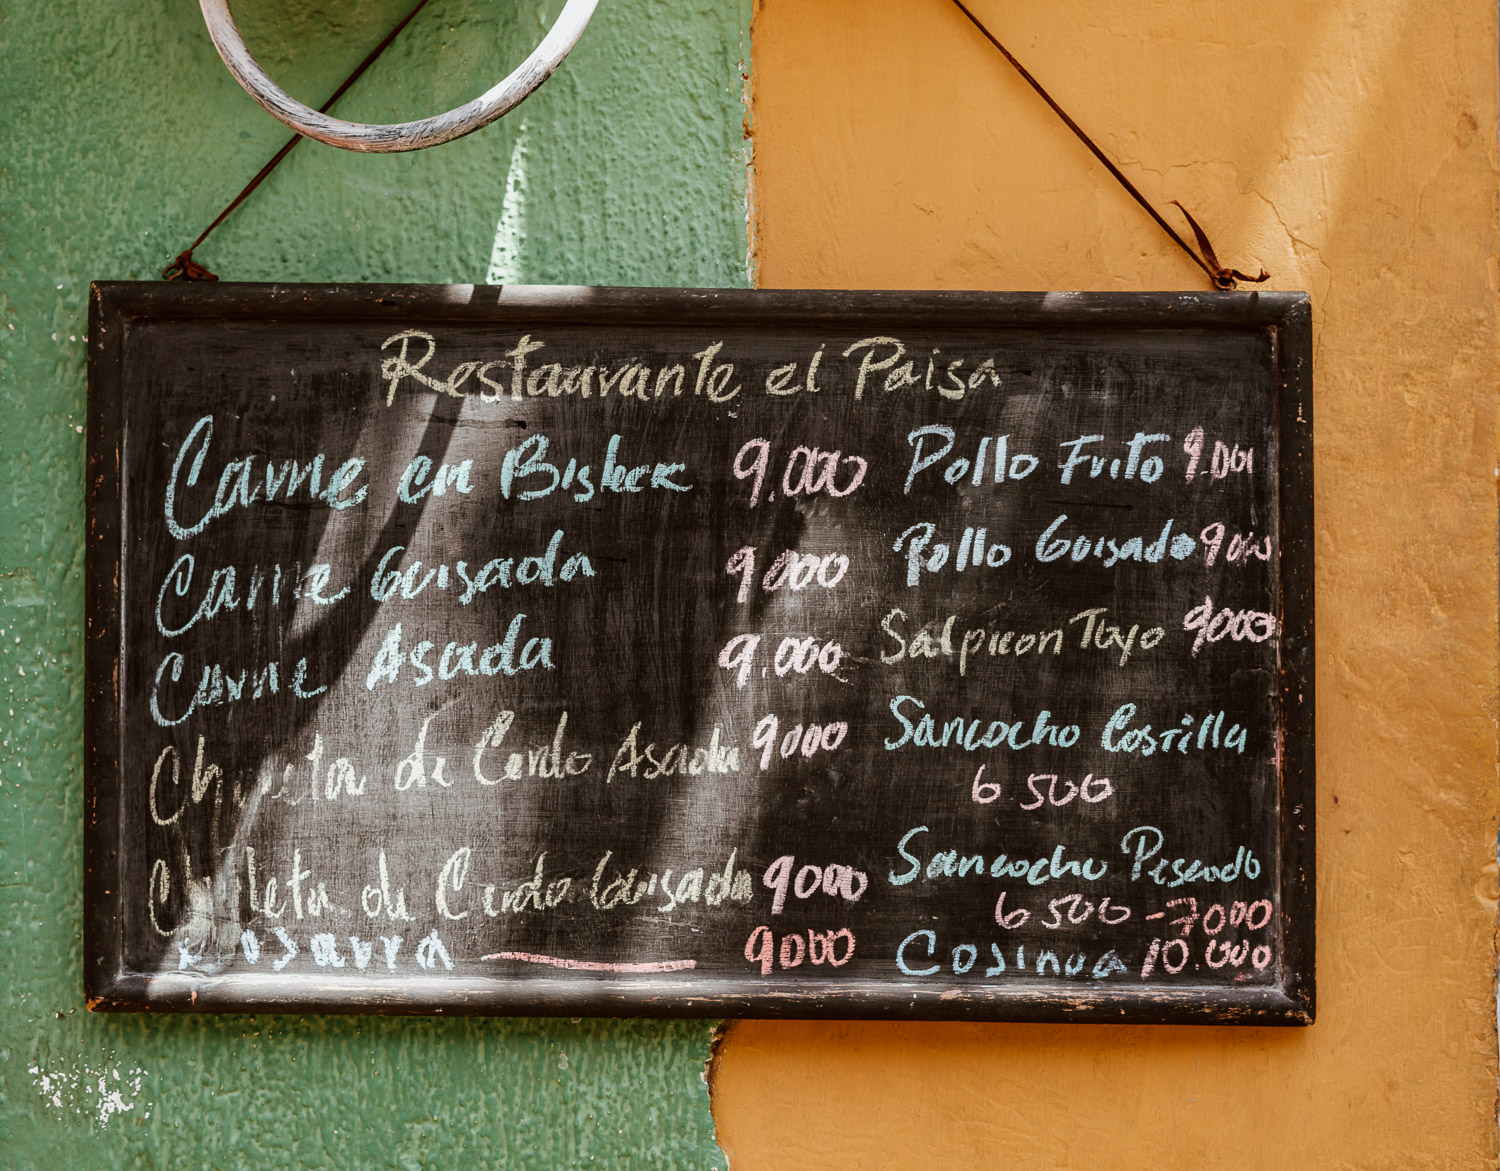 Restaurante el Paisa
Carne en Bisteck 9.000
Carne Guisada 9000
Carne Asada 9.000
Chuleta de Cerdo Asada 9000
Chuleta de Cerdo Guisada 9000
9000
Pollo Frito 9.000
Pollo Guisado 9000
Salpicon Toyo 9000
Sancocho Costilla
6 500
Sancocho Pescado
6 500 - 7000
10.000